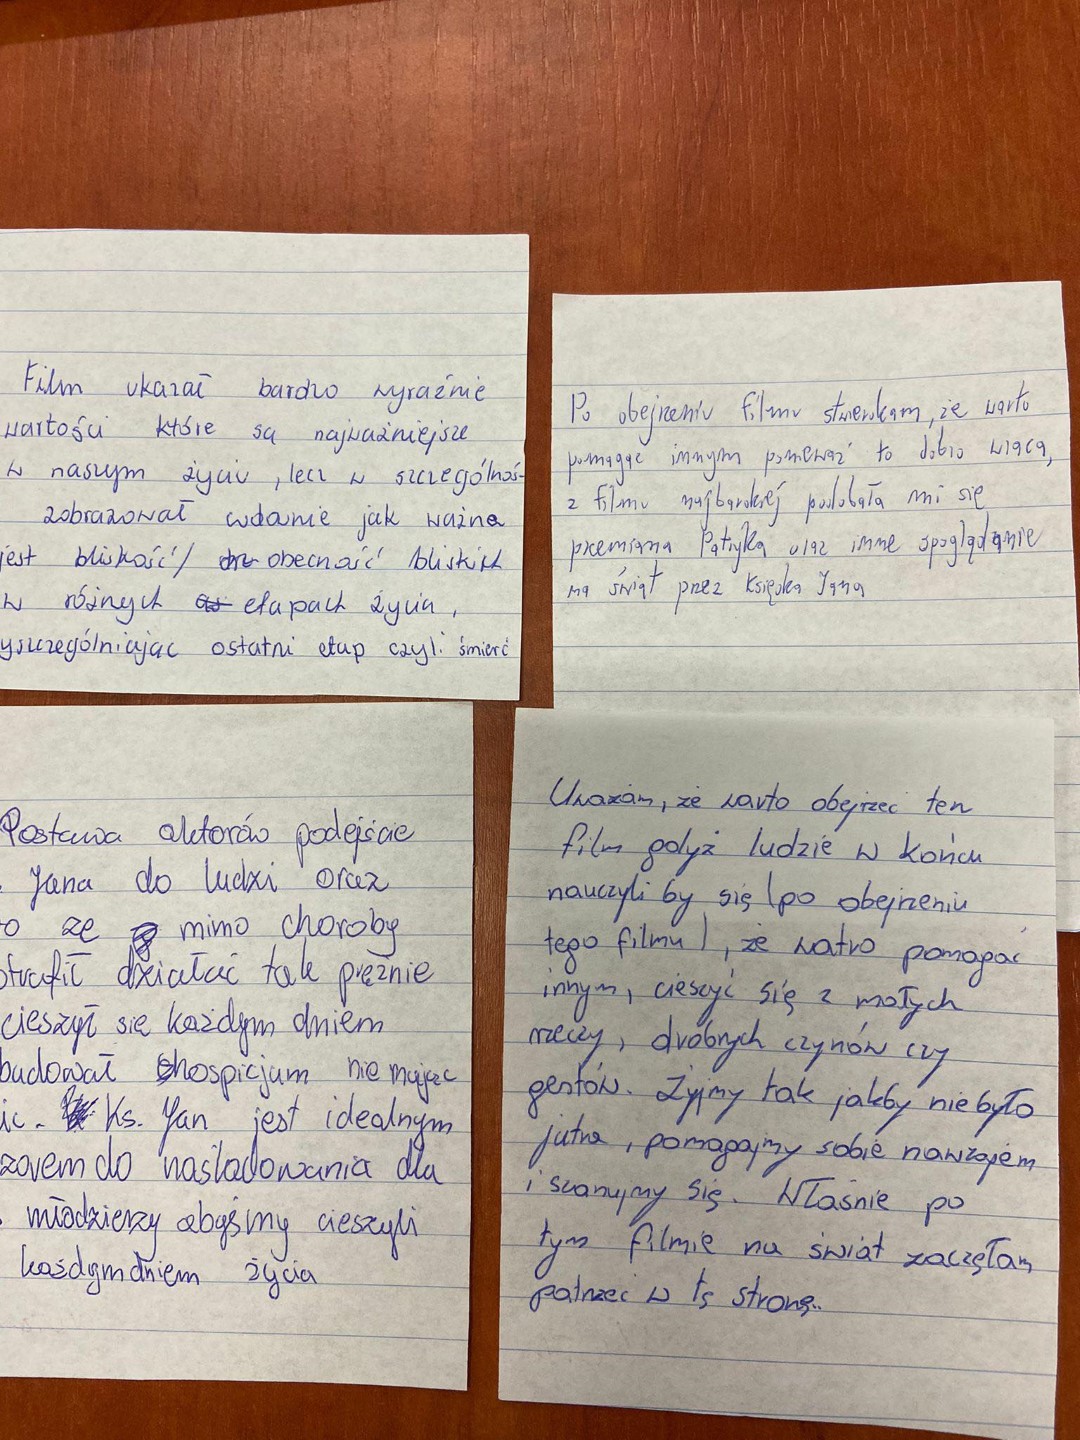 Film ukazał bardzo wyraźnie
wartości które są najważniejsze
w naszym życiu, lecz w szczególnoś-
zobrazował wdanie jak ważna
jest bliskość/ obecność bliskich
w różnych etapach życia,
yszczególniając ostatni etap czyli śmierć
Po obejrzeniu filmu stwierdzam, że warto
pomagać innym ponieważ to dobro wraca,
z filmu najbardziej podobała mi się
przemiana Patryka oraz inne spoglądanie
na świat przez Księdza Jana
Postawa aktorów podejście
. Jana do ludzi oraz
o że mimo choroby
otrafił działać tak prężnie
cieszył się każdym dniem
budował hospicjum nie mając
ic. Ks. Jan jest idealnym
zorem do naśladowania dla
młodzieży abyśmy cieszyli
każdym dniem życia
Uważam, że warto obejrzeć ten
film gdyż ludzie w końcu
nauczyli by się (po obejrzeniu
tego filmu), że watro pomagać
innym, cieszyć się z małych
rzeczy, drobnych czynów czy
gestów. Żyjmy tak jakby nie było
jutra, pomagajmy sobie nawzajem
i szanujmy się. Właśnie po
tym filmie na świat zaczęłam
patrzeć w tę stronę..